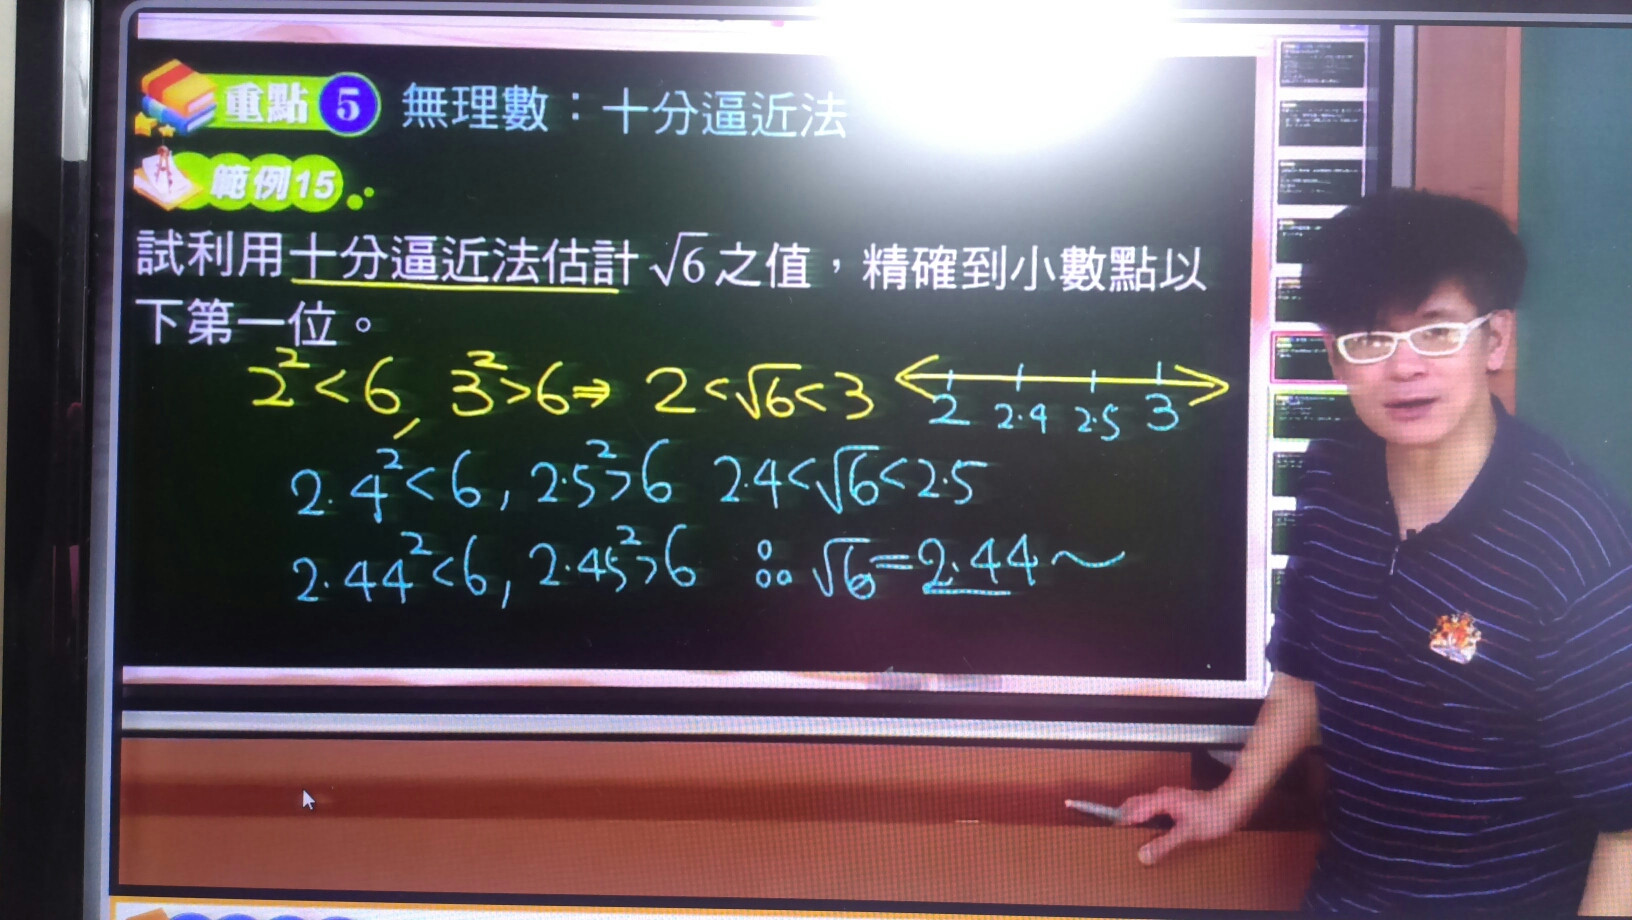 重點 5 無理數：十分逼近法
範例15
試利用十分逼近法估計 √6 之值，精確到小數點以
下第一位。
2²<6, 3²>6 ⇒ 2<√6<3
2 2.4 2.5 3
2.4²<6, 2.5²>6 2.4<√6<2.5
2.44²<6, 2.45²>6 ∴ √6=2.44~